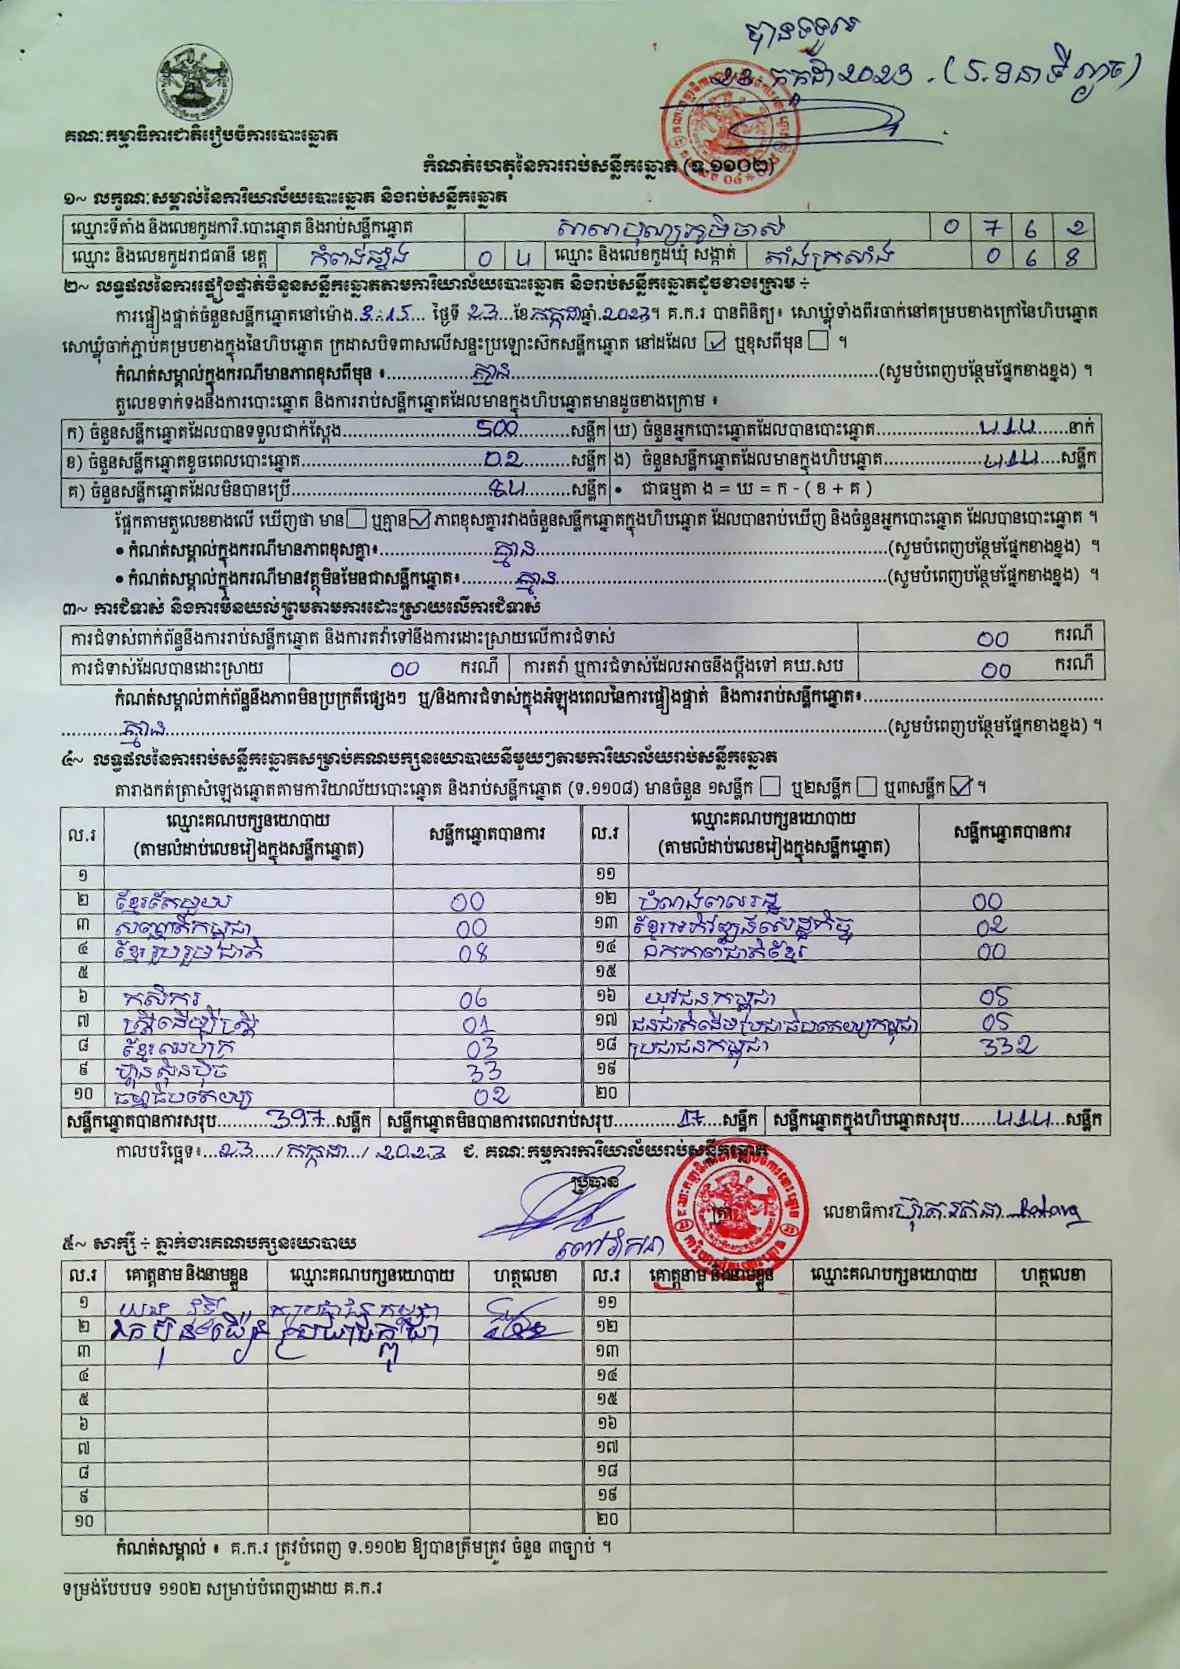 បានទទួល
២៣. កក្កដា ២០២៣
គណៈកម្មាធិការជាតិរៀបចំការបោះឆ្នោត
កំណត់ហេតុនៃការរាប់សន្លឹកឆ្នោត (ទ.១១០២)
១~ លក្ខណៈសម្គាល់នៃការិយាល័យបោះឆ្នោត និងរាប់សន្លឹកឆ្នោត
ឈ្មោះទីតាំង និងលេខកូដការិ.បោះឆ្នោត និងរាប់សន្លឹកឆ្នោត សាលាបុណ្យភូមិចាស់ ០ ៧ ៤ ២
ឈ្មោះ និងលេខកូដរាជធានី ខេត្ត កំពង់ឆ្នាំង ០ ៤ ឈ្មោះ និងលេខកូដឃុំ សង្កាត់ តាំងក្រសាំង ០ ៦ ៤
២~ លទ្ធផលនៃការផ្ទៀងផ្ទាត់ចំនួនសន្លឹកឆ្នោតតាមការិយាល័យបោះឆ្នោត និងរាប់សន្លឹកឆ្នោតដូចខាងក្រោម ÷
ការផ្ទៀងផ្ទាត់ចំនួនសន្លឹកឆ្នោតនៅម៉ោង 3:15 ថ្ងៃទី 23 ខែ កក្កដា ឆ្នាំ 2023។ គ.ក.រ បានពិនិត្យ៖ សោឃ្លុំទាំងពីរចាក់នៅគម្របខាងក្រៅនៃហិបឆ្នោត
សោឃ្លុំចាក់ភ្ជាប់គម្របខាងក្នុងនៃហិបឆ្នោត ក្រដាសបិទពាសលើសន្ទះប្រឡោះស៊កសន្លឹកឆ្នោត នៅដដែល ☑ ឬខុសពីមុន ☐ ។
កំណត់សម្គាល់ក្នុងករណីមានភាពខុសពីមុន ៖ គ្មាន (សូមបំពេញបន្ថែមផ្នែកខាងខ្នង) ។
តួលេខទាក់ទងនឹងការបោះឆ្នោត និងការរាប់សន្លឹកឆ្នោតដែលមានក្នុងហិបឆ្នោតមានដូចខាងក្រោម ៖
ក) ចំនួនសន្លឹកឆ្នោតដែលបានទទួលជាក់ស្តែង 500 សន្លឹក ឃ) ចំនួនអ្នកបោះឆ្នោតដែលបានបោះឆ្នោត ៤១៤ នាក់
ខ) ចំនួនសន្លឹកឆ្នោតខូចពេលបោះឆ្នោត ០២ សន្លឹក ង) ចំនួនសន្លឹកឆ្នោតដែលមានក្នុងហិបឆ្នោត ៤១៤ សន្លឹក
គ) ចំនួនសន្លឹកឆ្នោតដែលមិនបានប្រើ ៨៤ សន្លឹក • ជាធម្មតា ង = ឃ = ក - ( ខ + គ )
ផ្អែកតាមតួលេខខាងលើ ឃើញថា មាន ☐ ឬគ្មាន ☑ ភាពខុសគ្នារវាងចំនួនសន្លឹកឆ្នោតក្នុងហិបឆ្នោត ដែលបានរាប់ឃើញ និងចំនួនអ្នកបោះឆ្នោត ដែលបានបោះឆ្នោត ។
• កំណត់សម្គាល់ក្នុងករណីមានភាពខុសគ្នា៖ គ្មាន (សូមបំពេញបន្ថែមផ្នែកខាងខ្នង) ។
• កំណត់សម្គាល់ក្នុងករណីមានវត្ថុមិនមែនជាសន្លឹកឆ្នោត៖ គ្មាន (សូមបំពេញបន្ថែមផ្នែកខាងខ្នង) ។
៣~ ការជំទាស់ និងការមិនយល់ព្រមតាមការដោះស្រាយលើការជំទាស់
ការជំទាស់ពាក់ព័ន្ធនឹងការរាប់សន្លឹកឆ្នោត និងការតវ៉ាទៅនឹងការដោះស្រាយលើការជំទាស់ 00 ករណី
ការជំទាស់ដែលបានដោះស្រាយ 00 ករណី ការតវ៉ា ឬការជំទាស់ដែលអាចនឹងប្តឹងទៅ គឃ.សប 00 ករណី
កំណត់សម្គាល់ពាក់ព័ន្ធនឹងភាពមិនប្រក្រតីផ្សេងៗ ឬ/និងការជំទាស់ក្នុងអំឡុងពេលនៃការផ្ទៀងផ្ទាត់ និងការរាប់សន្លឹកឆ្នោត៖
គ្មាន (សូមបំពេញបន្ថែមផ្នែកខាងខ្នង) ។
៤~ លទ្ធផលនៃការរាប់សន្លឹកឆ្នោតសម្រាប់គណបក្សនយោបាយនីមួយៗតាមការិយាល័យរាប់សន្លឹកឆ្នោត
តារាងកត់ត្រាសំឡេងឆ្នោតតាមការិយាល័យបោះឆ្នោត និងរាប់សន្លឹកឆ្នោត (ទ.១១០៨) មានចំនួន ១សន្លឹក ☐ ឬ២សន្លឹក ☐ ឬ៣សន្លឹក ☑ ។
ល.រ ឈ្មោះគណបក្សនយោបាយ (តាមលំដាប់លេខរៀងក្នុងសន្លឹកឆ្នោត) សន្លឹកឆ្នោតបានការ ល.រ ឈ្មោះគណបក្សនយោបាយ (តាមលំដាប់លេខរៀងក្នុងសន្លឹកឆ្នោត) សន្លឹកឆ្នោតបានការ
១ ១១
២ ខ្មែរតែមួយ 00 ១២ បំណងពលរដ្ឋ 00
៣ សញ្ជាតិកម្ពុជា 00 ១៣ ខ្មែរអភិវឌ្ឍន៍សេដ្ឋកិច្ច 02
៤ ខ្មែររួបរួមជាតិ 08 ១៤ ឯកភាពជាតិខ្មែរ 00
៥ ១៥
៦ កសិករ 06 ១៦ យុវជនកម្ពុជា 05
៧ ស្ត្រីដើម្បីស្ត្រី 01 ១៧ ជនជាតិដើមប្រជាធិបតេយ្យកម្ពុជា 05
៨ ខ្មែរអភិរក្ស 03 ១៨ ប្រជាជនកម្ពុជា 332
៩ ហ្វ៊ុនស៊ិនប៉ិច 33 ១៩
១០ ធម្មាធិបតេយ្យ 02 ២០
សន្លឹកឆ្នោតបានការសរុប 397 សន្លឹក សន្លឹកឆ្នោតមិនបានការពេលរាប់សរុប 17 សន្លឹក សន្លឹកឆ្នោតក្នុងហិបឆ្នោតសរុប ៤១៤ សន្លឹក
កាលបរិច្ឆេទ៖ 23 / កក្កដា / 2023 ជ. គណៈកម្មការការិយាល័យរាប់សន្លឹកឆ្នោត
ប្រធាន លេខាធិការ
៥~ សាក្សី ÷ ភ្នាក់ងារគណបក្សនយោបាយ
ល.រ គោត្តនាម និងនាមខ្លួន ឈ្មោះគណបក្សនយោបាយ ហត្ថលេខា ល.រ គោត្តនាម និងនាមខ្លួន ឈ្មោះគណបក្សនយោបាយ ហត្ថលេខា
១ ១១
២ ប្រជាជនកម្ពុជា ១២
៣ ១៣
៤ ១៤
៥ ១៥
៦ ១៦
៧ ១៧
៨ ១៨
៩ ១៩
១០ ២០
កំណត់សម្គាល់ ៖ គ.ក.រ ត្រូវបំពេញ ទ.១១០២ ឱ្យបានត្រឹមត្រូវ ចំនួន ៣ច្បាប់ ។
ទម្រង់បែបបទ ១១០២ សម្រាប់បំពេញដោយ គ.ក.រ